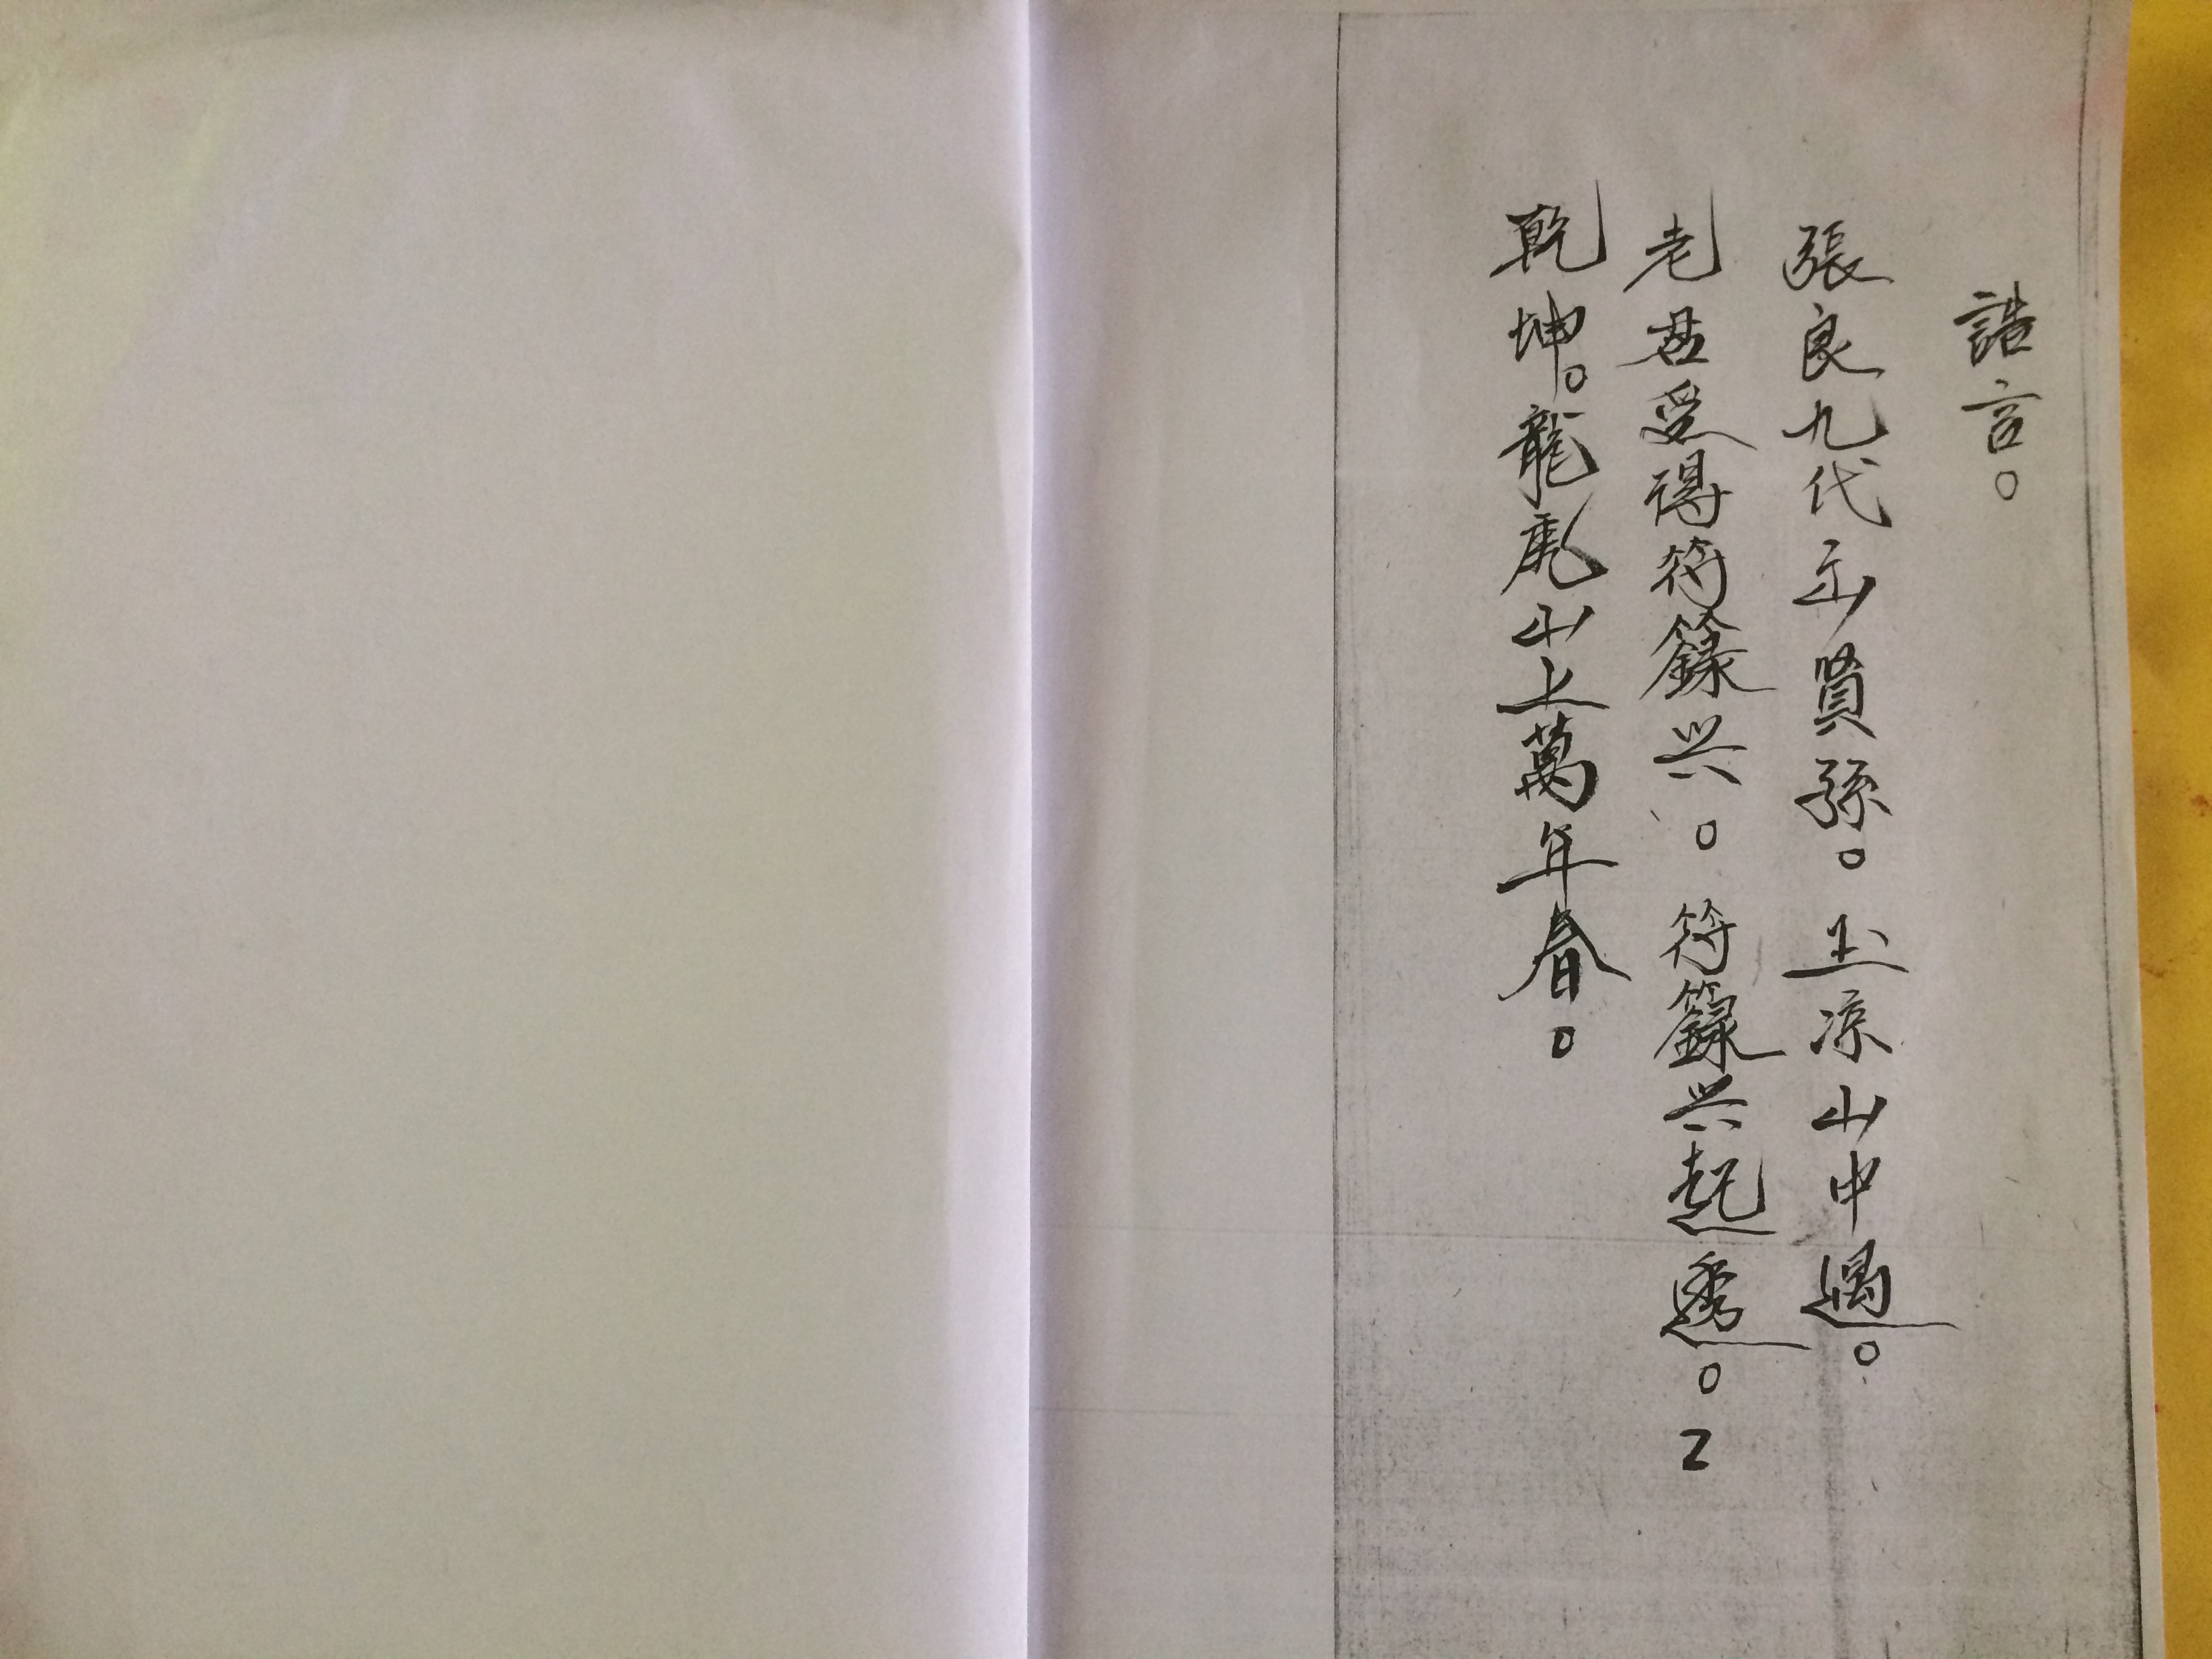 誥言。
張良九代出賢孫。玉凉山中遇。
老君受得符籙兴。符籙兴起透。2
乾坤。龍虎山上萬年春。